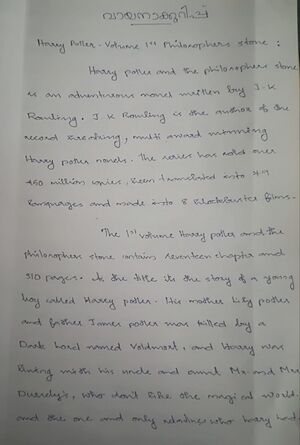 വായനാക്കുറിപ്പ്
Harry Potter - Volume 1st Philosophers stone :
Harry potter and the philosophers stone
is an adventurous novel written by J. K
Rowling. J. K Rowling is the author of the
record breaking, multi award winning
Harry potter novels. The series has sold over
450 million copies, been translated into 79
languages and made into 8 blockbuster films.
The 1st volume Harry potter and the
philosophers stone contains seventeen chapter and
310 pages. As the title its the story of a young
boy called Harry potter. His mother Lily potter
and father James potter was killed by a
Dark lord named Voldmort, and Harry was
living with his uncle and aunt Mr. and Mrs
Dursely's, who don't like the magical world.
and the one and only relatives who harry had.